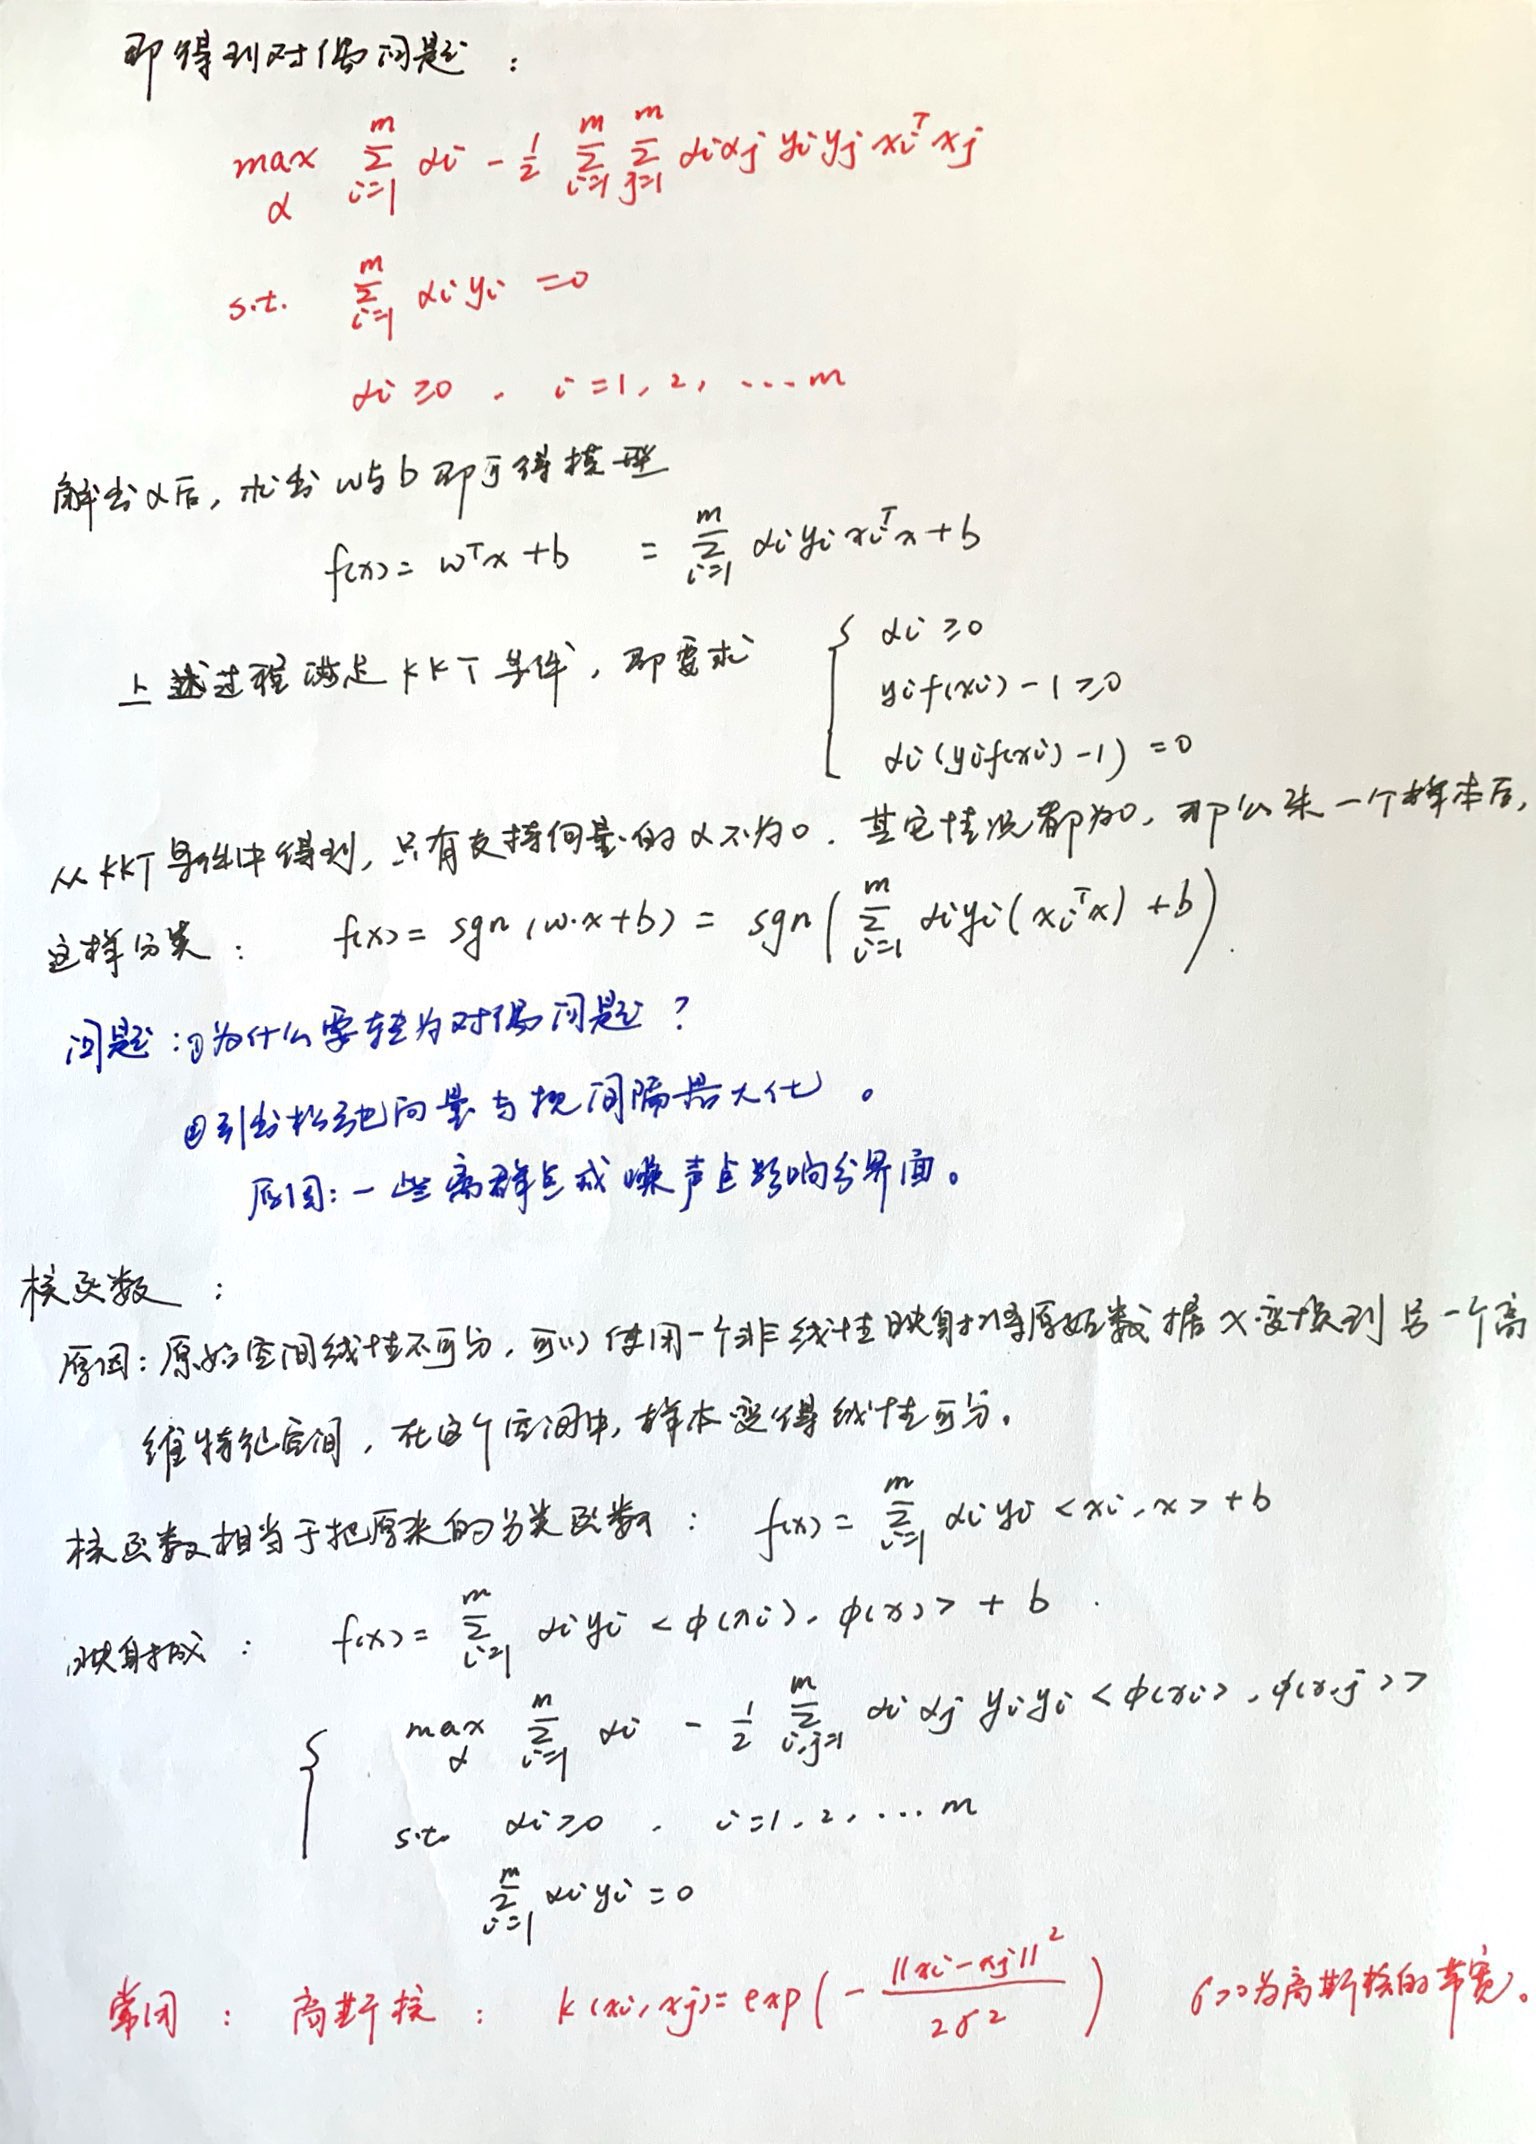 即得到对偶问题：
max_α ∑_{i=1}^{m} αi - 1/2 ∑_{i=1}^{m} ∑_{j=1}^{m} αiαj yiyj xi^T xj
s.t. ∑_{i=1}^{m} αi yi = 0
αi ≥ 0 , i = 1, 2, ... m
解出α后，求出w与b即可得模型
f(x) = w^T x + b = ∑_{i=1}^{m} αi yi xi^T x + b
上述过程满足KKT条件，即要求 { αi ≥ 0
yi f(xi) - 1 ≥ 0
αi (yi f(xi) - 1) = 0
从KKT条件中得到，只有支持向量的α不为0，其它情况都为0，那么来一个样本后，
这样分类： f(x) = sgn(w·x+b) = sgn( ∑_{i=1}^{m} αi yi (xi^T x) + b ).
问题：①为什么要转为对偶问题？
②引出松弛向量与软间隔最大化。
原因：一些离群点或噪声点影响分界面。
核函数：
原因：原始空间线性不可分，可以使用一个非线性映射将原始数据x变换到另一个高
维特征空间，在这个空间中，样本变得线性可分。
核函数相当于把原来的分类函数： f(x) = ∑_{i=1}^{m} αi yi <xi, x> + b
映射成： f(x) = ∑_{i=1}^{m} αi yi <φ(xi), φ(x)> + b .
{ max_α ∑_{i=1}^{m} αi - 1/2 ∑_{i,j=1}^{m} αi αj yi yi <φ(xi), φ(xj)>
s.t. αi ≥ 0 , i = 1, 2, ... m
∑_{i=1}^{m} αi yi = 0
常用： 高斯核： k(xi, xj) = exp( - ||xi-xj||^2 / 2σ^2 ) σ>0为高斯核的带宽。